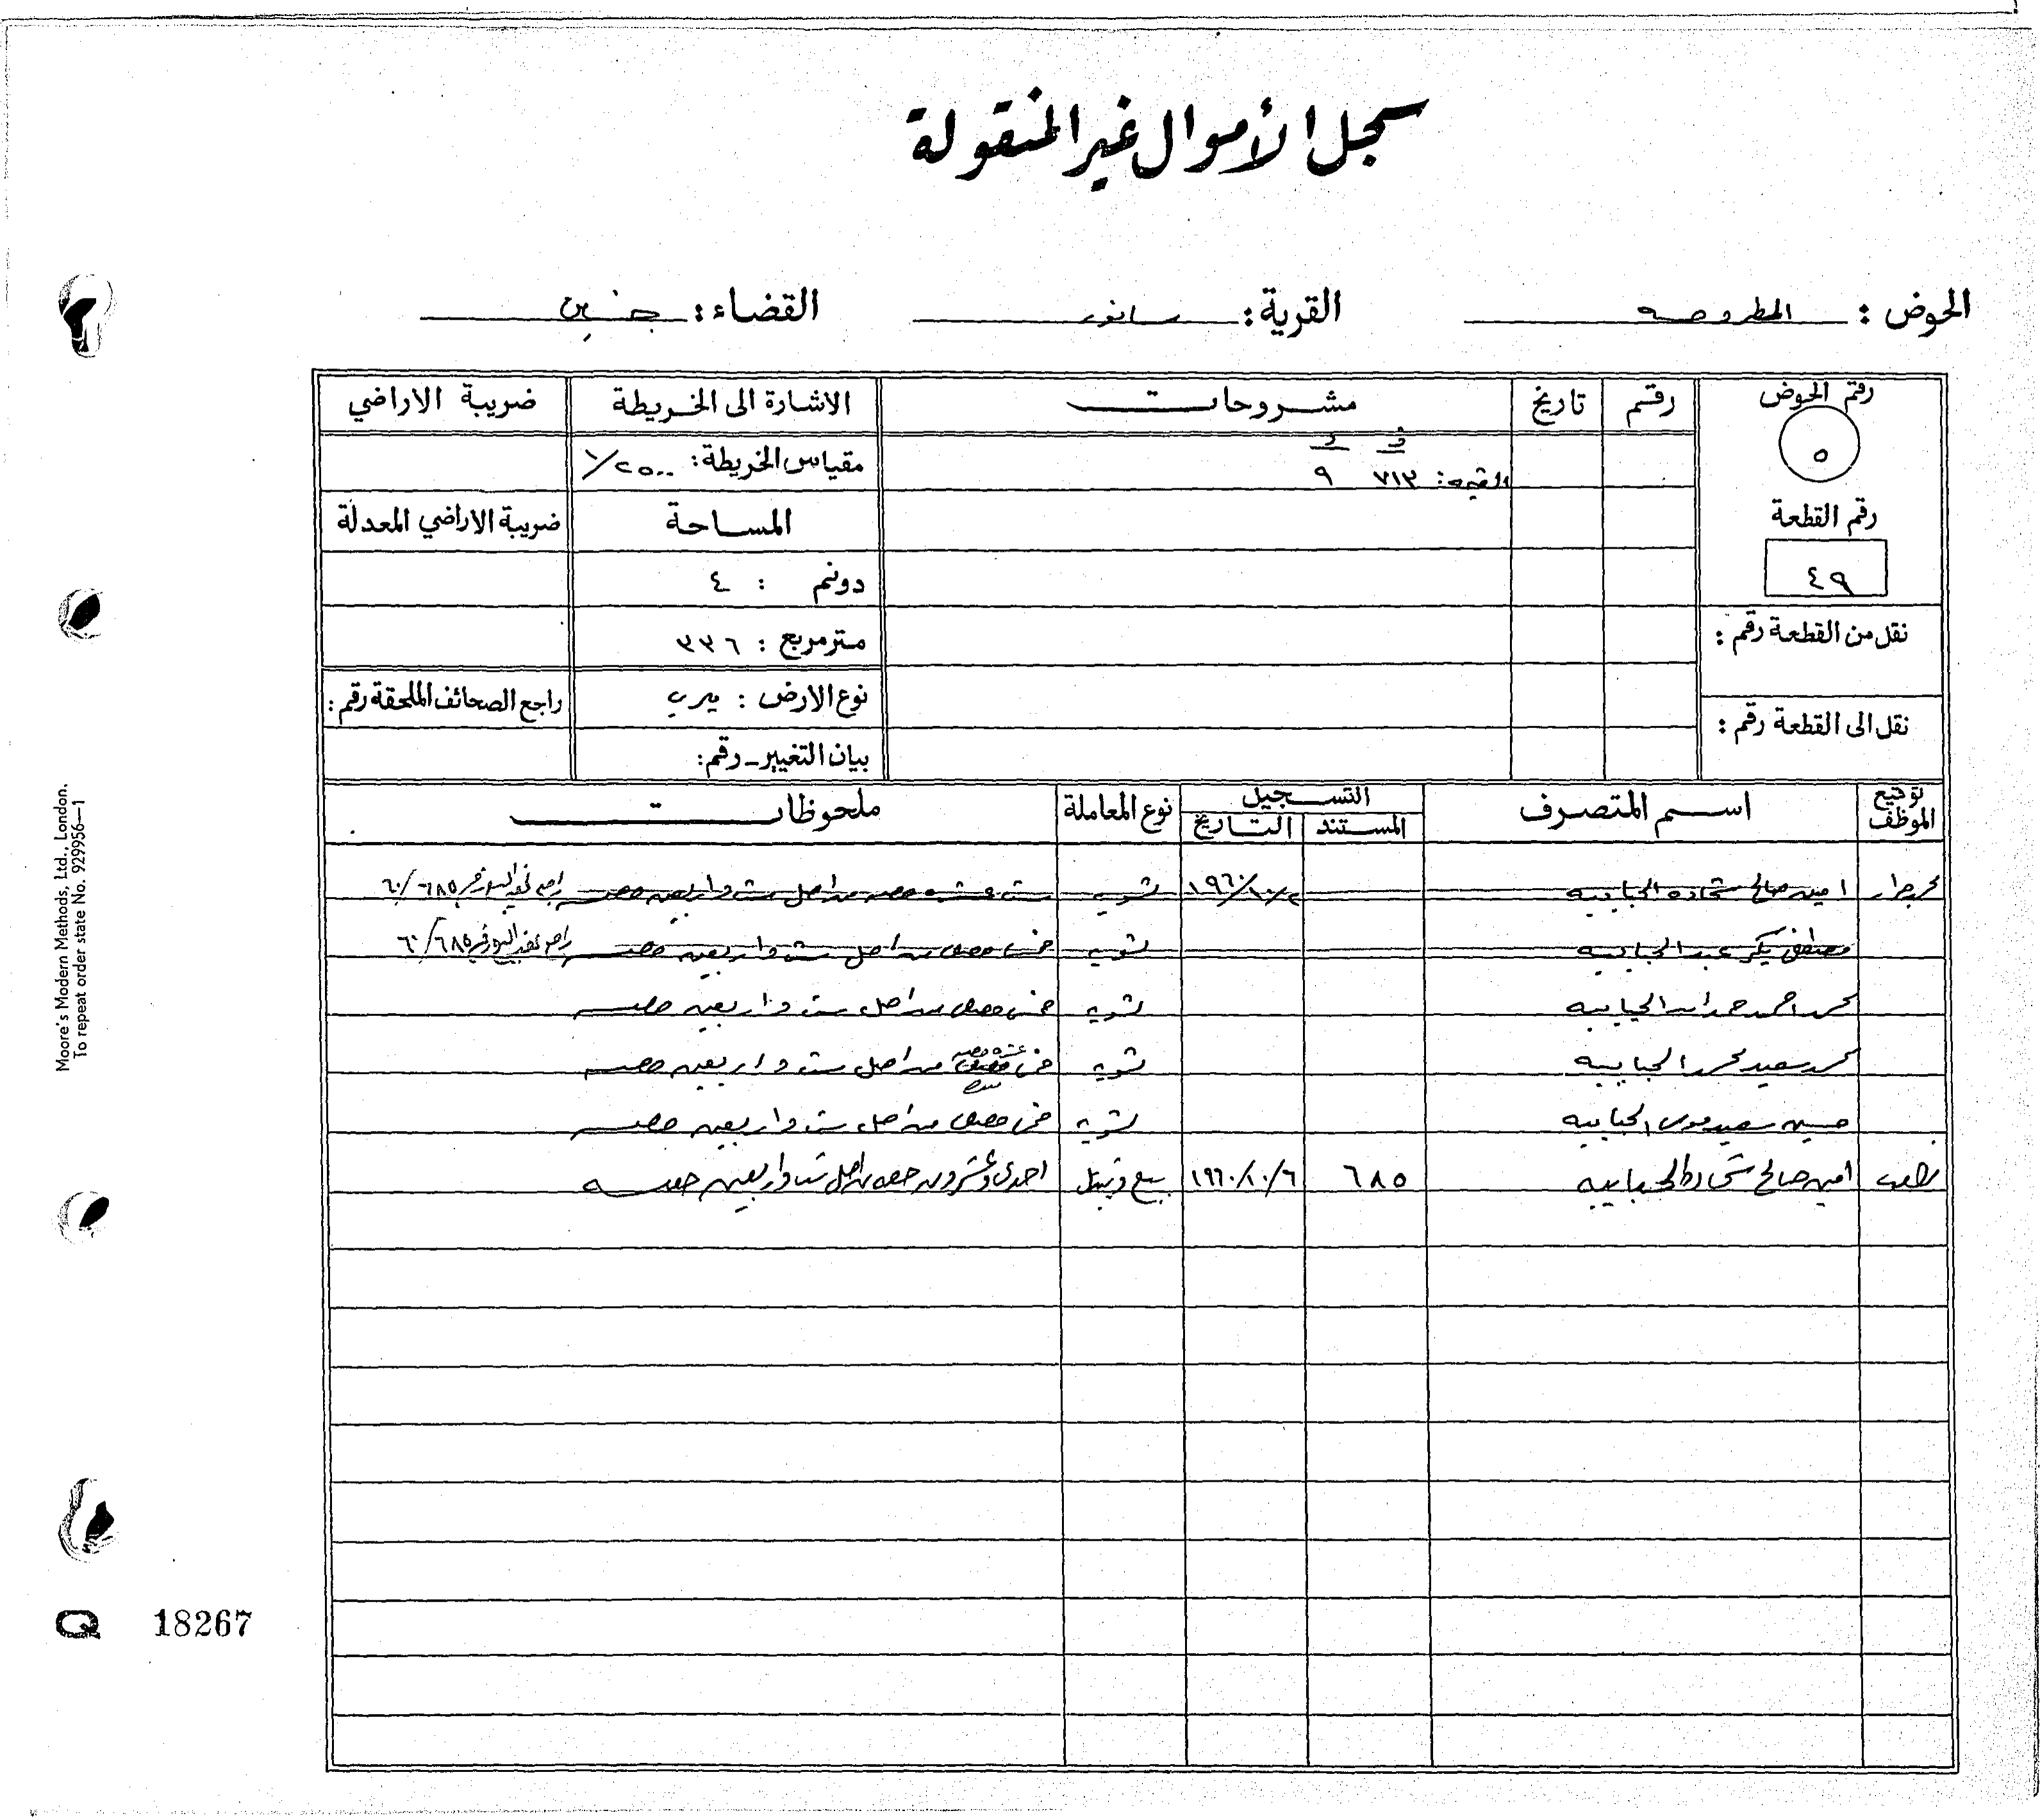 سجل الأموال غير المنقولة
الحوض : المطروحه القرية : سانور القضاء : جنين
رقم الحوض رقم تاريخ مشروحات الاشارة الى الخريطة ضريبة الاراضي
٥ مقياس الخريطة: ١/٢٥٠٠
القيمه: ٧١٣ ٩
رقم القطعة المساحة ضريبة الاراضي المعدلة
٤٩ دونم : ٤
نقل من القطعة رقم : متر مربع : ٣٣٦
نوع الارض : ميري راجع الصحائف الملحقة رقم :
نقل الى القطعة رقم : بيان التغيير - رقم:
توقيع الموظف اسم المتصرف التسجيل نوع المعاملة ملحوظات
المستند التاريخ
امين صالح شحاده الحبايبه ١٩٦٠/١٠/٢ تسويه ست عشره حصه من اصل ست واربعين حصه راجع عقد البيع رقم ٦٠/٦٨٥
مصطفى عبد الحبايبه تسويه خمس حصص من اصل ست واربعين حصه راجع عقد البيع رقم ٦٠/٦٨٥
محمد احمد حمدان الحبايبه تسويه خمس حصص من اصل ست واربعين حصه
محمد سعيد محمد الحبايبه تسويه خمس عشره حصه من اصل ست واربعين حصه
حسين سعيد موسى الحبايبه تسويه خمس حصص من اصل ست واربعين حصه
امين صالح شحاده الحبايبه ٦٨٥ ١٩٦٠/١٠/٦ بيع احدى وعشرون حصه من اصل ست واربعين حصه
Moore's Modern Methods, Ltd., London.
To repeat order state No. 929956—1
Q 18267